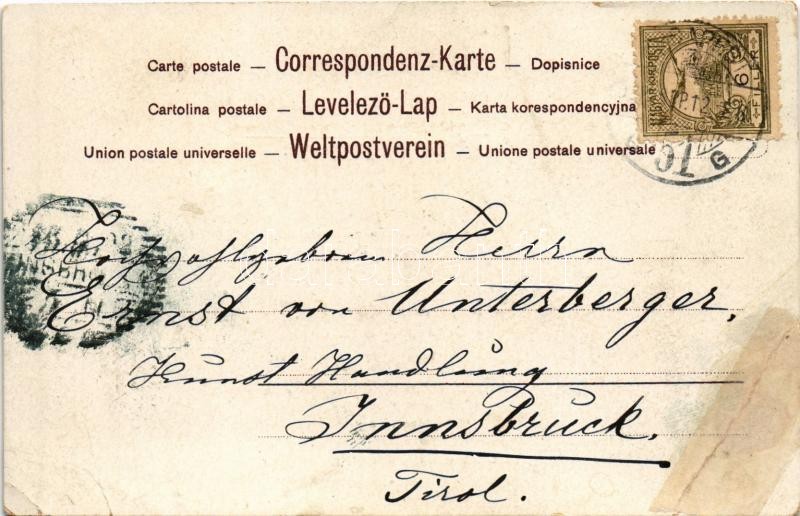 Carte postale — Correspondenz-Karte — Dopisnice
Cartolina postale — Levelezö-Lap — Karta korespondencyjna
Union postale universelle — Weltpostverein — Unione postale universale
Hochwohlgeboren Herrn
Ernst von Unterberger,
Kunst Handlung
Innsbruck.
Tirol.